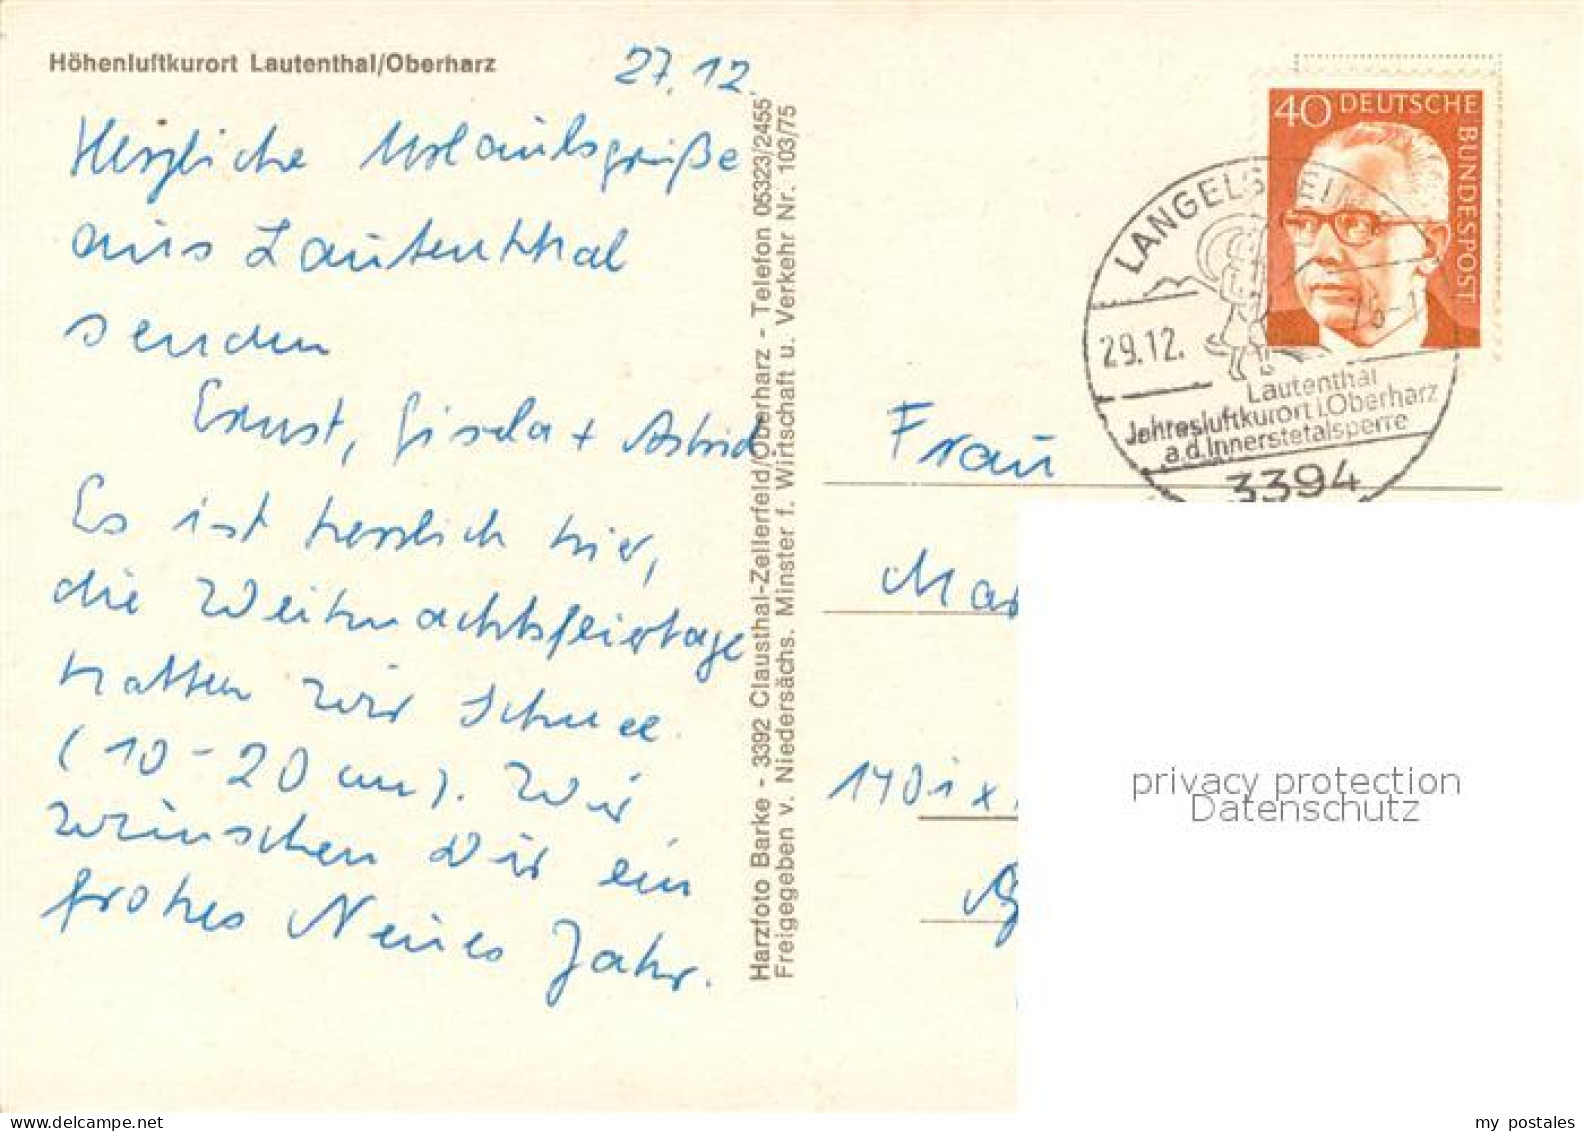 Höhenluftkurort Lautenthal/Oberharz
27.12.
Herzliche Urlaubsgrüße
aus Lautenthal
senden
Ernst, Gisela + Astrid
Es ist herrlich hier,
die Weihnachtsfeiertage
hatten wir Schnee
(10-20 cm). Wir
wünschen Dir ein
frohes Neues Jahr.
Harzfoto Barke - 3392 Clausthal-Zellerfeld/Oberharz - Telefon 05323/2455
Freigegeben v. Niedersächs. Minster f. Wirtschaft u. Verkehr Nr. 103/75
40 DEUTSCHE BUNDESPOST
LANGELSHEIM
29.12.
Lautenthal
Jahresluftkurort i. Oberharz
a.d. Innerstetalsperre
3394
Frau
Mar
privacy protection
Datenschutz
my postales